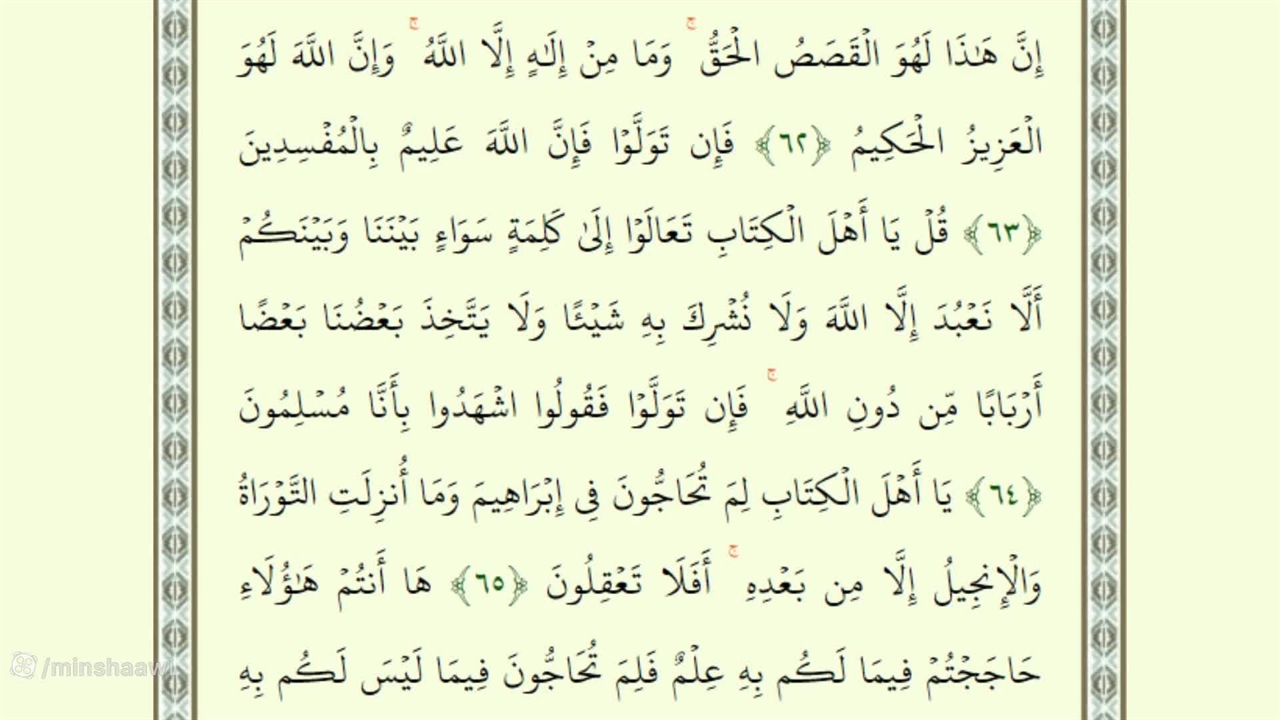 إِنَّ هَـٰذَا لَهُوَ الْقَصَصُ الْحَقُّ ۚ وَمَا مِنْ إِلَـٰهٍ إِلَّا اللَّهُ ۚ وَإِنَّ اللَّهَ لَهُوَ
الْعَزِيزُ الْحَكِيمُ ﴿٦٢﴾ فَإِن تَوَلَّوْا فَإِنَّ اللَّهَ عَلِيمٌ بِالْمُفْسِدِينَ
﴿٦٣﴾ قُلْ يَا أَهْلَ الْكِتَابِ تَعَالَوْا إِلَىٰ كَلِمَةٍ سَوَاءٍ بَيْنَنَا وَبَيْنَكُمْ
أَلَّا نَعْبُدَ إِلَّا اللَّهَ وَلَا نُشْرِكَ بِهِ شَيْئًا وَلَا يَتَّخِذَ بَعْضُنَا بَعْضًا
أَرْبَابًا مِّن دُونِ اللَّهِ ۚ فَإِن تَوَلَّوْا فَقُولُوا اشْهَدُوا بِأَنَّا مُسْلِمُونَ
﴿٦٤﴾ يَا أَهْلَ الْكِتَابِ لِمَ تُحَاجُّونَ فِي إِبْرَاهِيمَ وَمَا أُنزِلَتِ التَّوْرَاةُ
وَالْإِنجِيلُ إِلَّا مِن بَعْدِهِ ۚ أَفَلَا تَعْقِلُونَ ﴿٦٥﴾ هَا أَنتُمْ هَـٰؤُلَاءِ
حَاجَجْتُمْ فِيمَا لَكُم بِهِ عِلْمٌ فَلِمَ تُحَاجُّونَ فِيمَا لَيْسَ لَكُم بِهِ
/minshaaw